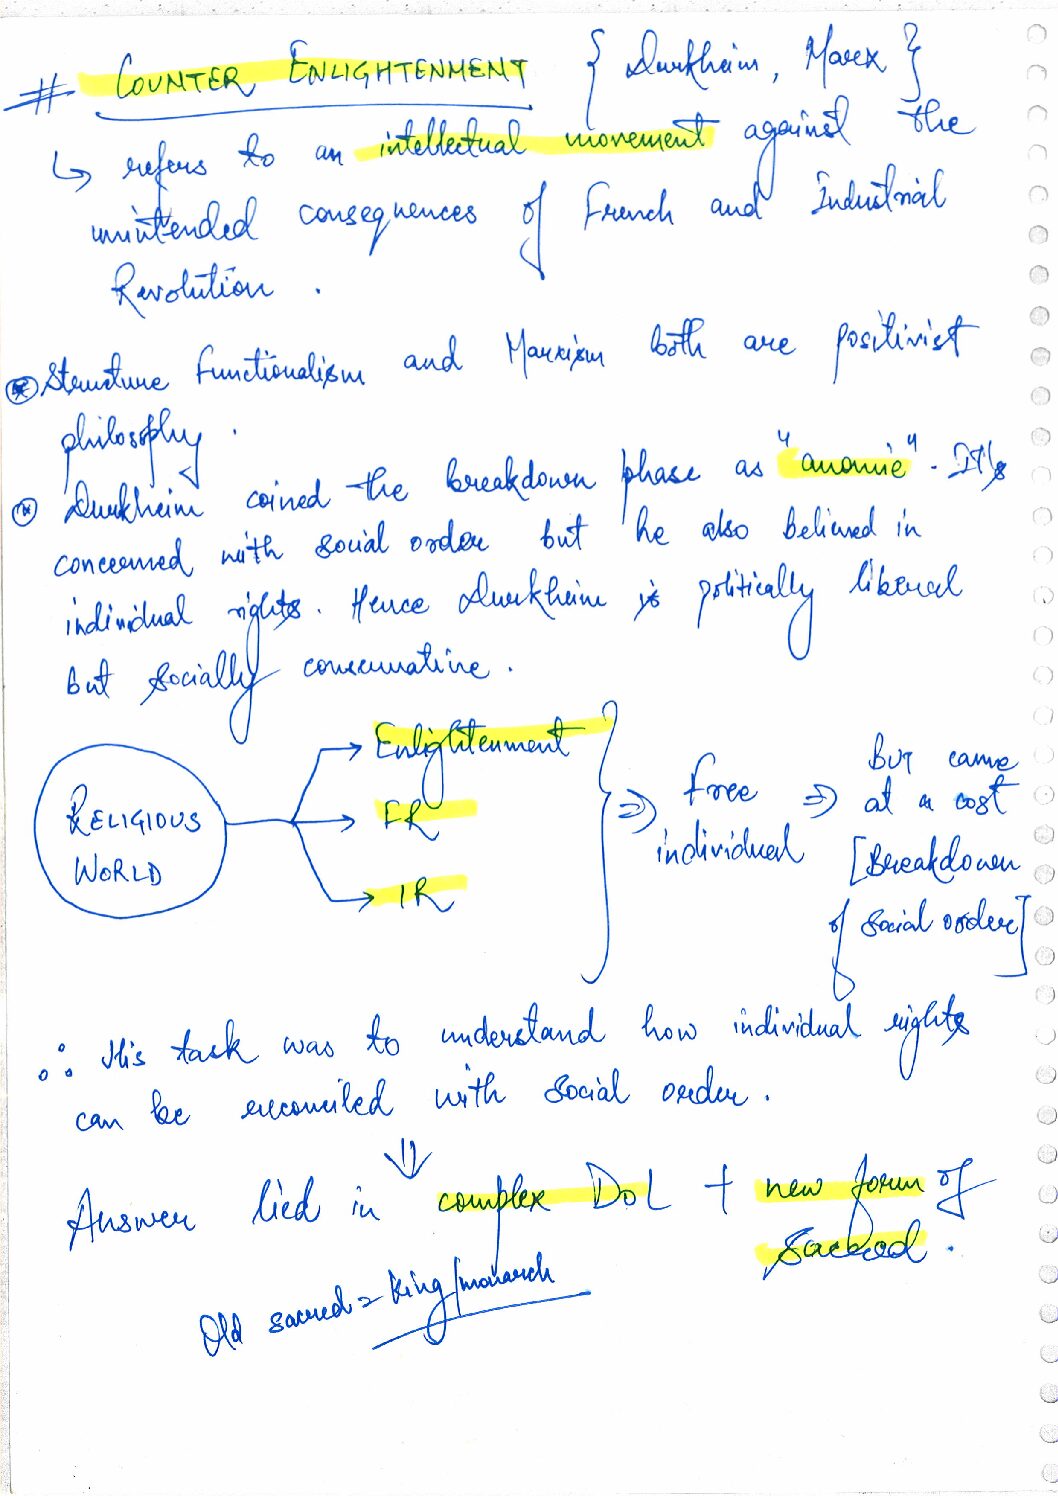 # COUNTER ENLIGHTENMENT { Durkheim, Marx }
↳ refers to an intellectual movement against the
unintended consequences of French and Industrial
Revolution.
Structure Functionalism and Marxism both are positivist
philosophy.
Durkheim coined the breakdown phase as "anomie". It's
concerned with social order but he also believed in
individual rights. Hence Durkheim is politically liberal
but socially conservative.
RELIGIOUS
WORLD
Enlightenment
FR
IR
⇒ Free
individual
⇒ But came
at a cost
[Breakdown
of social order]
∴ His task was to understand how individual rights
can be reconciled with social order.
⇓
Answer lied in complex DoL + new form of
sacred.
Old sacred = king/monarch